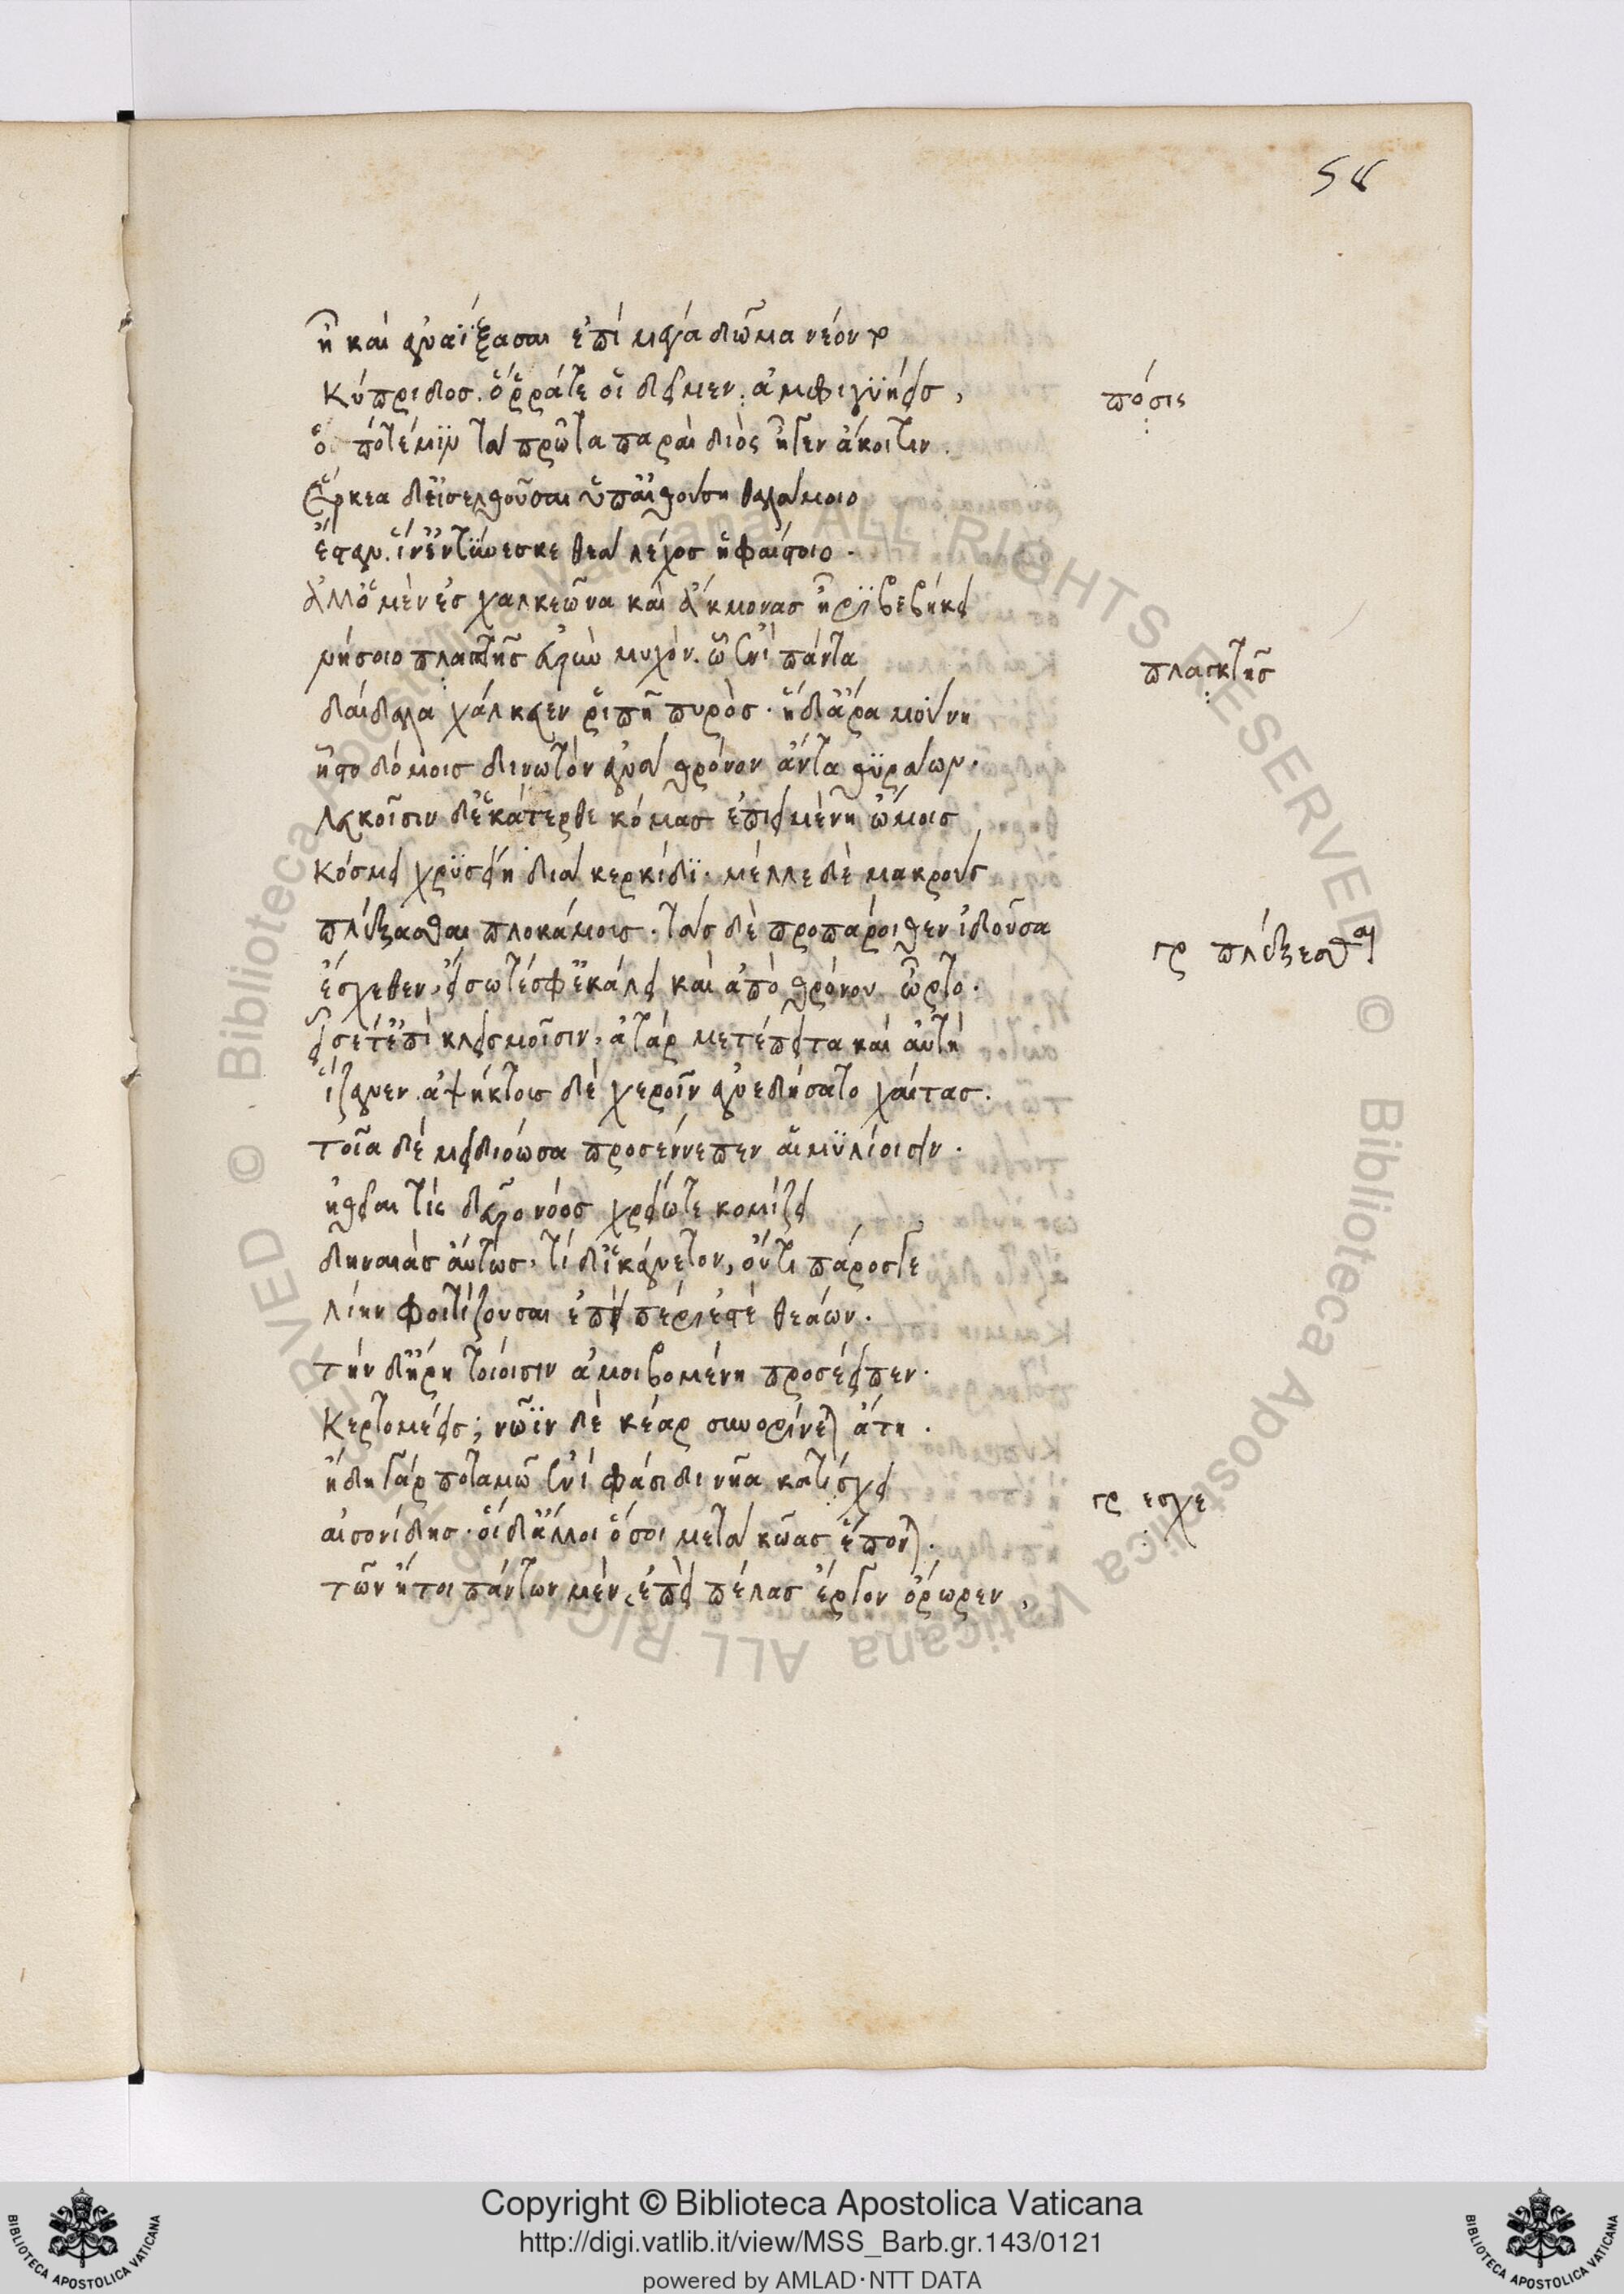 58
ἦ καὶ ἀναΐξασαι ἐπὶ μέγα δῶμα νέοντο
Κύπριδος. ὅ ῥά τέ οἱ δεῖμεν ἀμφιγυήεις, πόσις
ὁππότε μιν τὰ πρῶτα παραὶ διὸς ἦγεν ἄκοιτιν.
ἕρκεα δ' εἰσελθοῦσαι ὑπ' αἰθούσῃ θαλάμοιο
ἔσταν. ἵν' ἐντύνεσκε θεὰ λέχος ἡφαίστοιο.
ἀλλ' ὁ μὲν ἐς χαλκεῶνα καὶ ἄκμονας ἦρι βεβήκει
νήσοιο πλαγκτῆς εὐρὺν μυχόν. ᾧ ἐνὶ πάντα πλαγκτῆς
δαίδαλα χάλκευεν ῥιπῇ πυρός. ἡ δ' ἄρα μούνη
ἧστο δόμοις δινωτὸν ἀνὰ θρόνον ἄντα θυράων.
λευκοῖσιν δ' ἑκάτερθε κόμας ἐπιειμένη ὤμοις
Κόσμει χρυσείῃ διὰ κερκίδι. μέλλε δὲ μακροὺς
πλέξασθαι πλοκάμους. τὰς δὲ προπάροιθεν ἰδοῦσα γρ πλέξεσθαι
ἔσχεθεν, εἴσω τέ σφε κάλει καὶ ἀπὸ θρόνου ὦρτο.
εἷσέ τ' ἐπὶ κλισμοῖσιν, ἀτὰρ μετέπειτα καὶ αὐτὴ
ἵζανεν. ἀψήκτους δὲ χεροῖν ἀνεδήσατο χαίτας.
τοῖα δὲ μειδιόωσα προσέννεπεν αἱμυλίοισιν.
ἠθεῖαι τίς δεῦρο νόος χρειώ τε κομίζει
δηναιὰς αὔτως, τί δ' ἱκάνετον, οὔτι πάρος γε
λίην φοιτίζουσαι ἐπεὶ περίεστε θεάων.
τὴν δ' ἥρη τοίοισιν ἀμοιβομένη προσέειπεν.
Κερτομέεις; νῶϊν δὲ κέαρ συνορίνεται ἄτῃ.
ἤδη γὰρ ποταμῷ ἐνὶ φάσιδι νῆα κατίσχει γρ εσχε
αἰσονίδης. οἵ δ' ἄλλοι ὅσοι μετὰ κῶας ἕπονται.
τῶν ἤτοι πάντων μὲν, ἐπεὶ πέλας ἔργον ὄρωρεν,
Copyright © Biblioteca Apostolica Vaticana
http://digi.vatlib.it/view/MSS_Barb.gr.143/0121
powered by AMLAD·NTT DATA